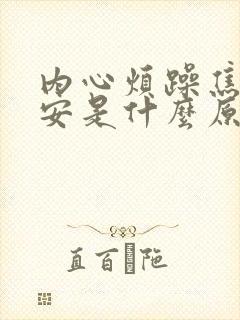 内心烦躁焦
安是什麼原
直百 陁